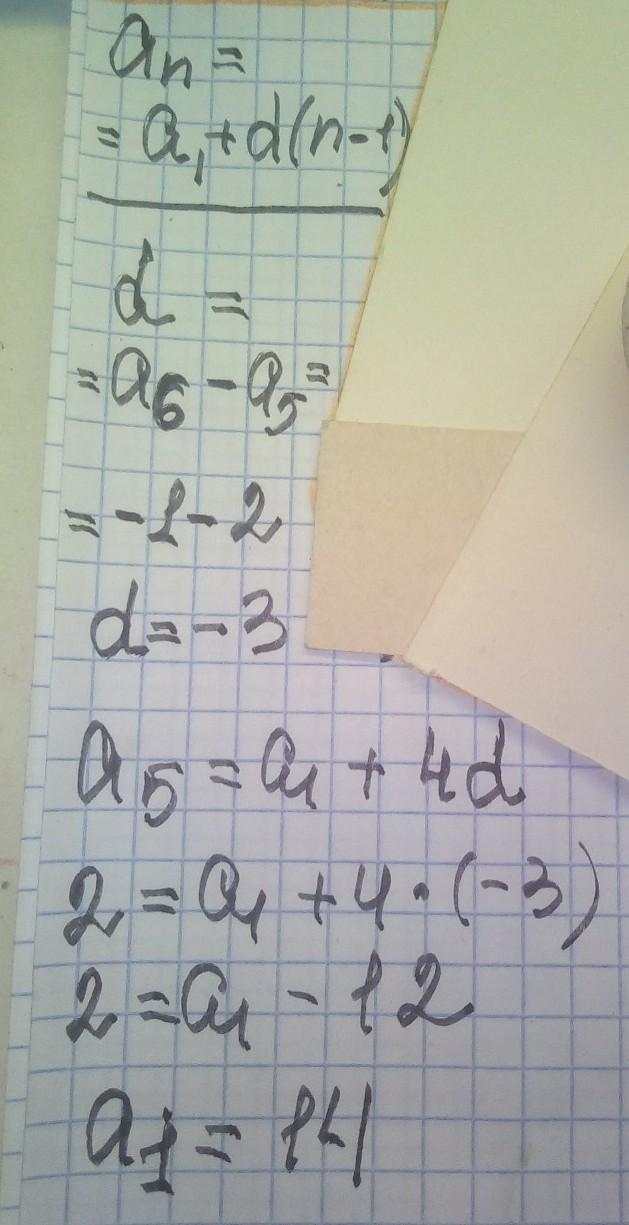 aₙ =
= a₁ + d(n-1)
d =
= a₆ - a₅ =
= -1 - 2
d = -3
a₅ = a₁ + 4d
2 = a₁ + 4 · (-3)
2 = a₁ - 12
a₁ = 14